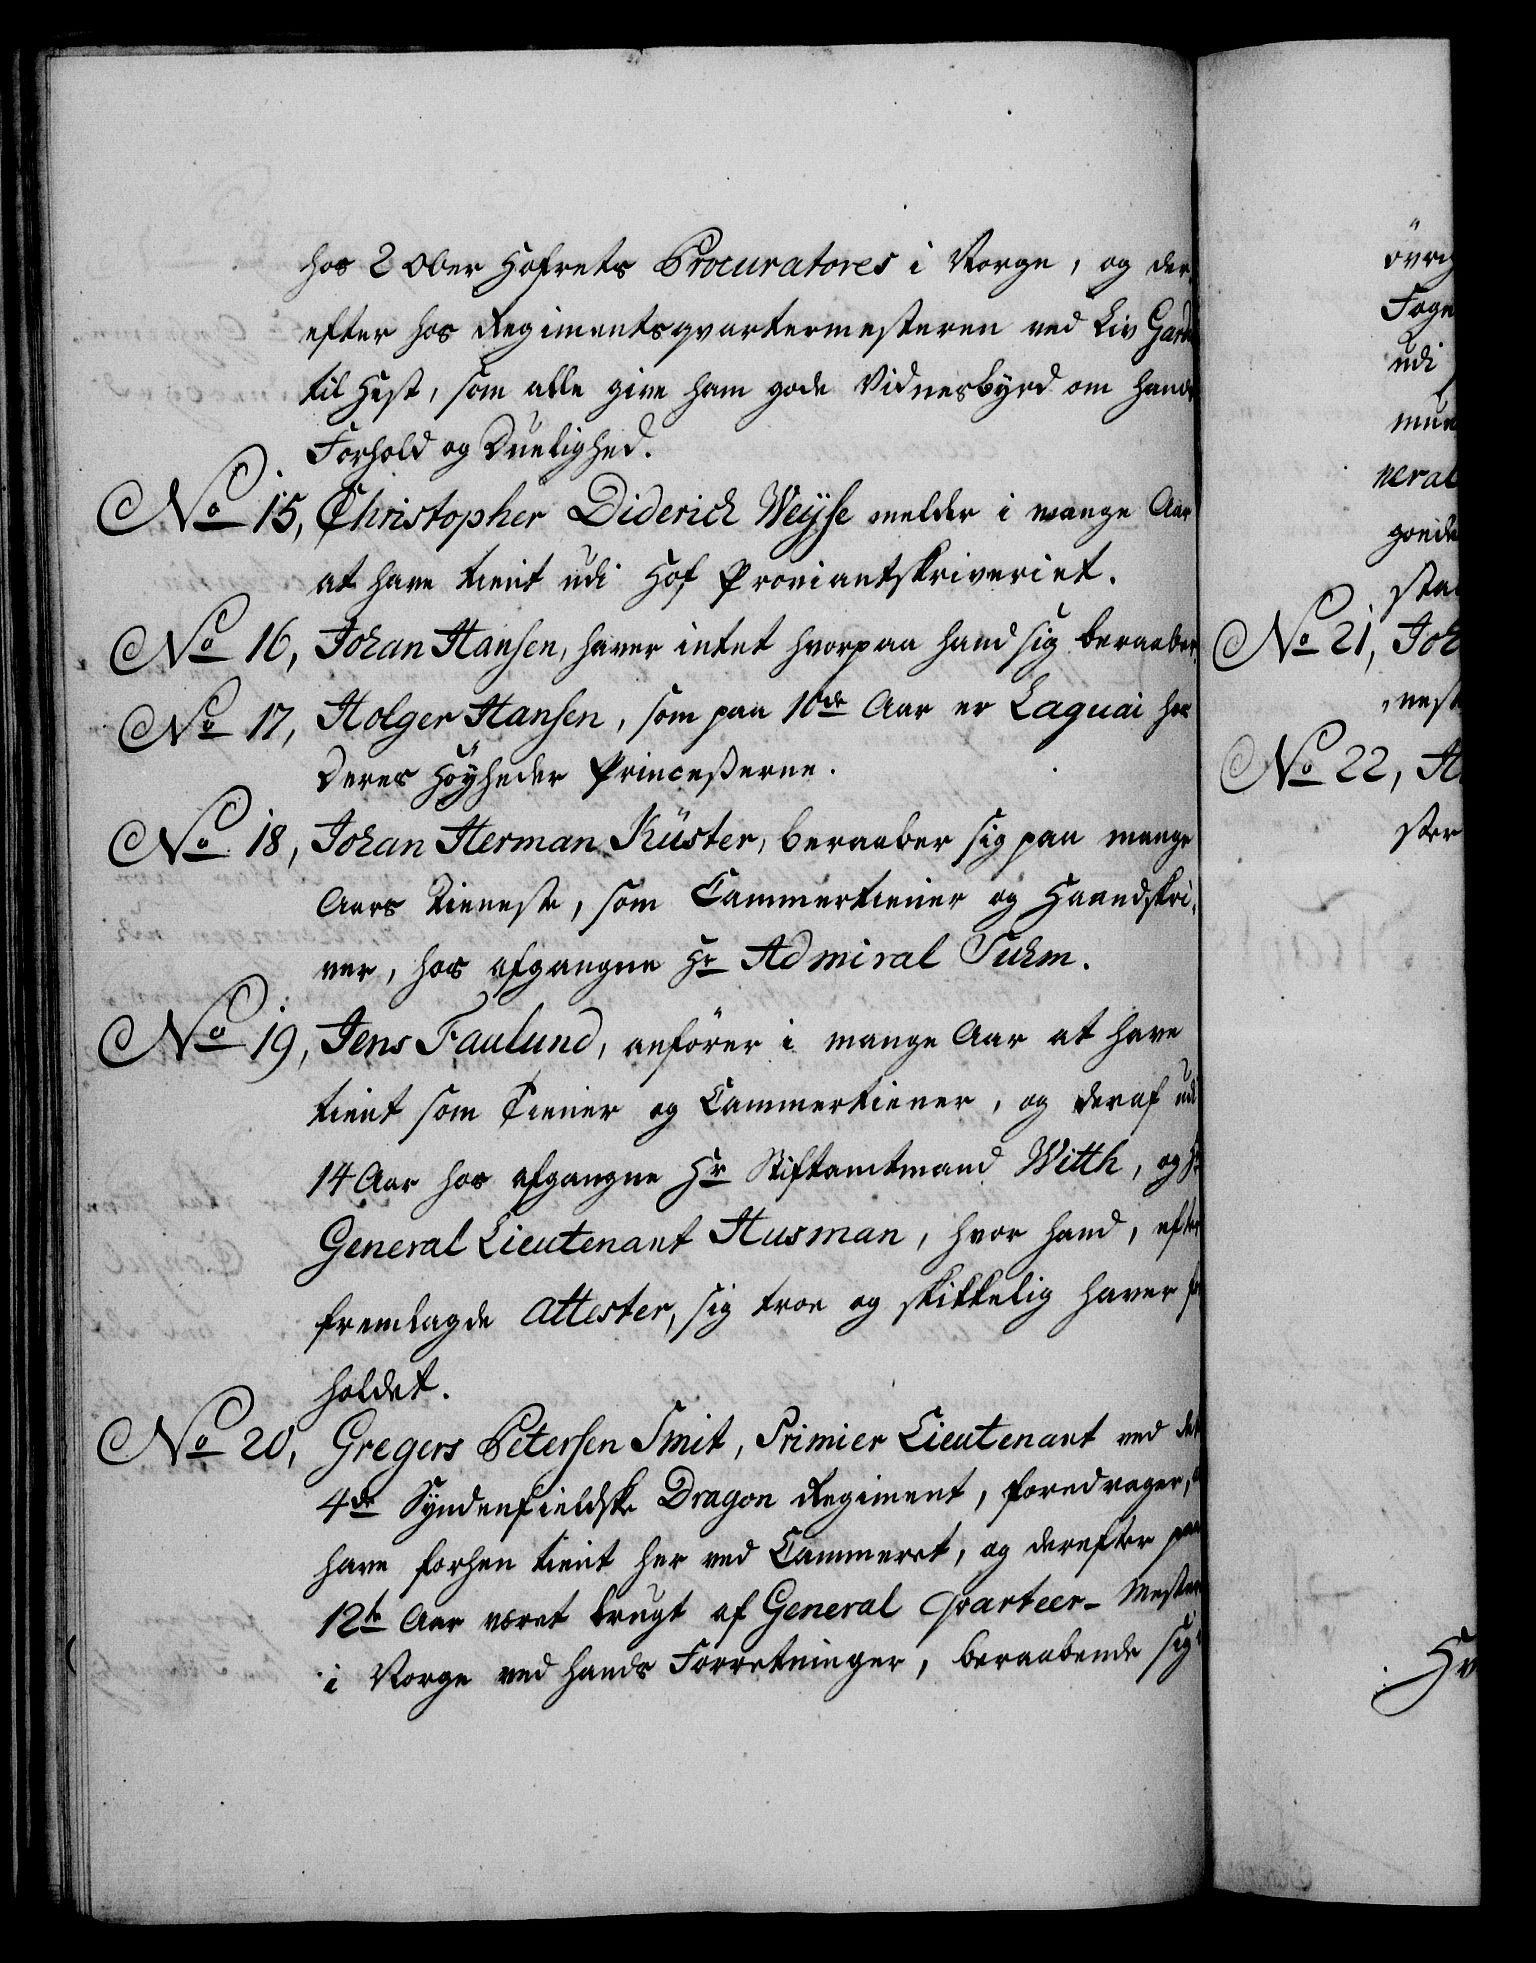 hos 2 Ober Hofrets Procuratores i Norge, og der,
efter hos Regimentsqvartermesteren ved Liv Garde
til Hest, som alle give ham gode Vidnesbyrd om hands
Forhold og Duelighed.
No 15, Christopher Diderich Weyse melder i mange Aar
at have tient udi Hof Proviantskriveriet.
No 16, Johan Hansen, haver intet hvorpaa hand sig beraaber.
No 17, Holger Hansen, som paa 10de Aar er Laquai hos
Deres Höyheder Princesserne.
No 18, Johan Herman Küster, beraaber sig paa mange
Aars Tieneste, som Cammertiener og Haandskri,
ver, hos afgangne Hr Admiral Suhm.
No 19, Jens Faulund, anförer i mange Aar at have
tient som Tiener og Cammertiener, og deraf udi
14 Aar hos afgangne Hr Stiftamtmand Witth, og Hr
General Lieutenant Husman, hvor hand, efter
fremlagde Attester, sig troe og skikkelig haver for
holdet.
No 20, Gregers Petersen Smit, Primier Lieutenant ved det
4de Syndenfieldske Dragon Regiment, foredrager, at
have forhen tient her ved Cammeret, og derefter paa
12te Aar været brugt af General Qvarteer- Mesteren
i Norge ved hands Forretninger, beraabende sig
övrig
Foge
udi
mun
neral
sta
No 21, Joh
nest
No 22, H
ster
Hv